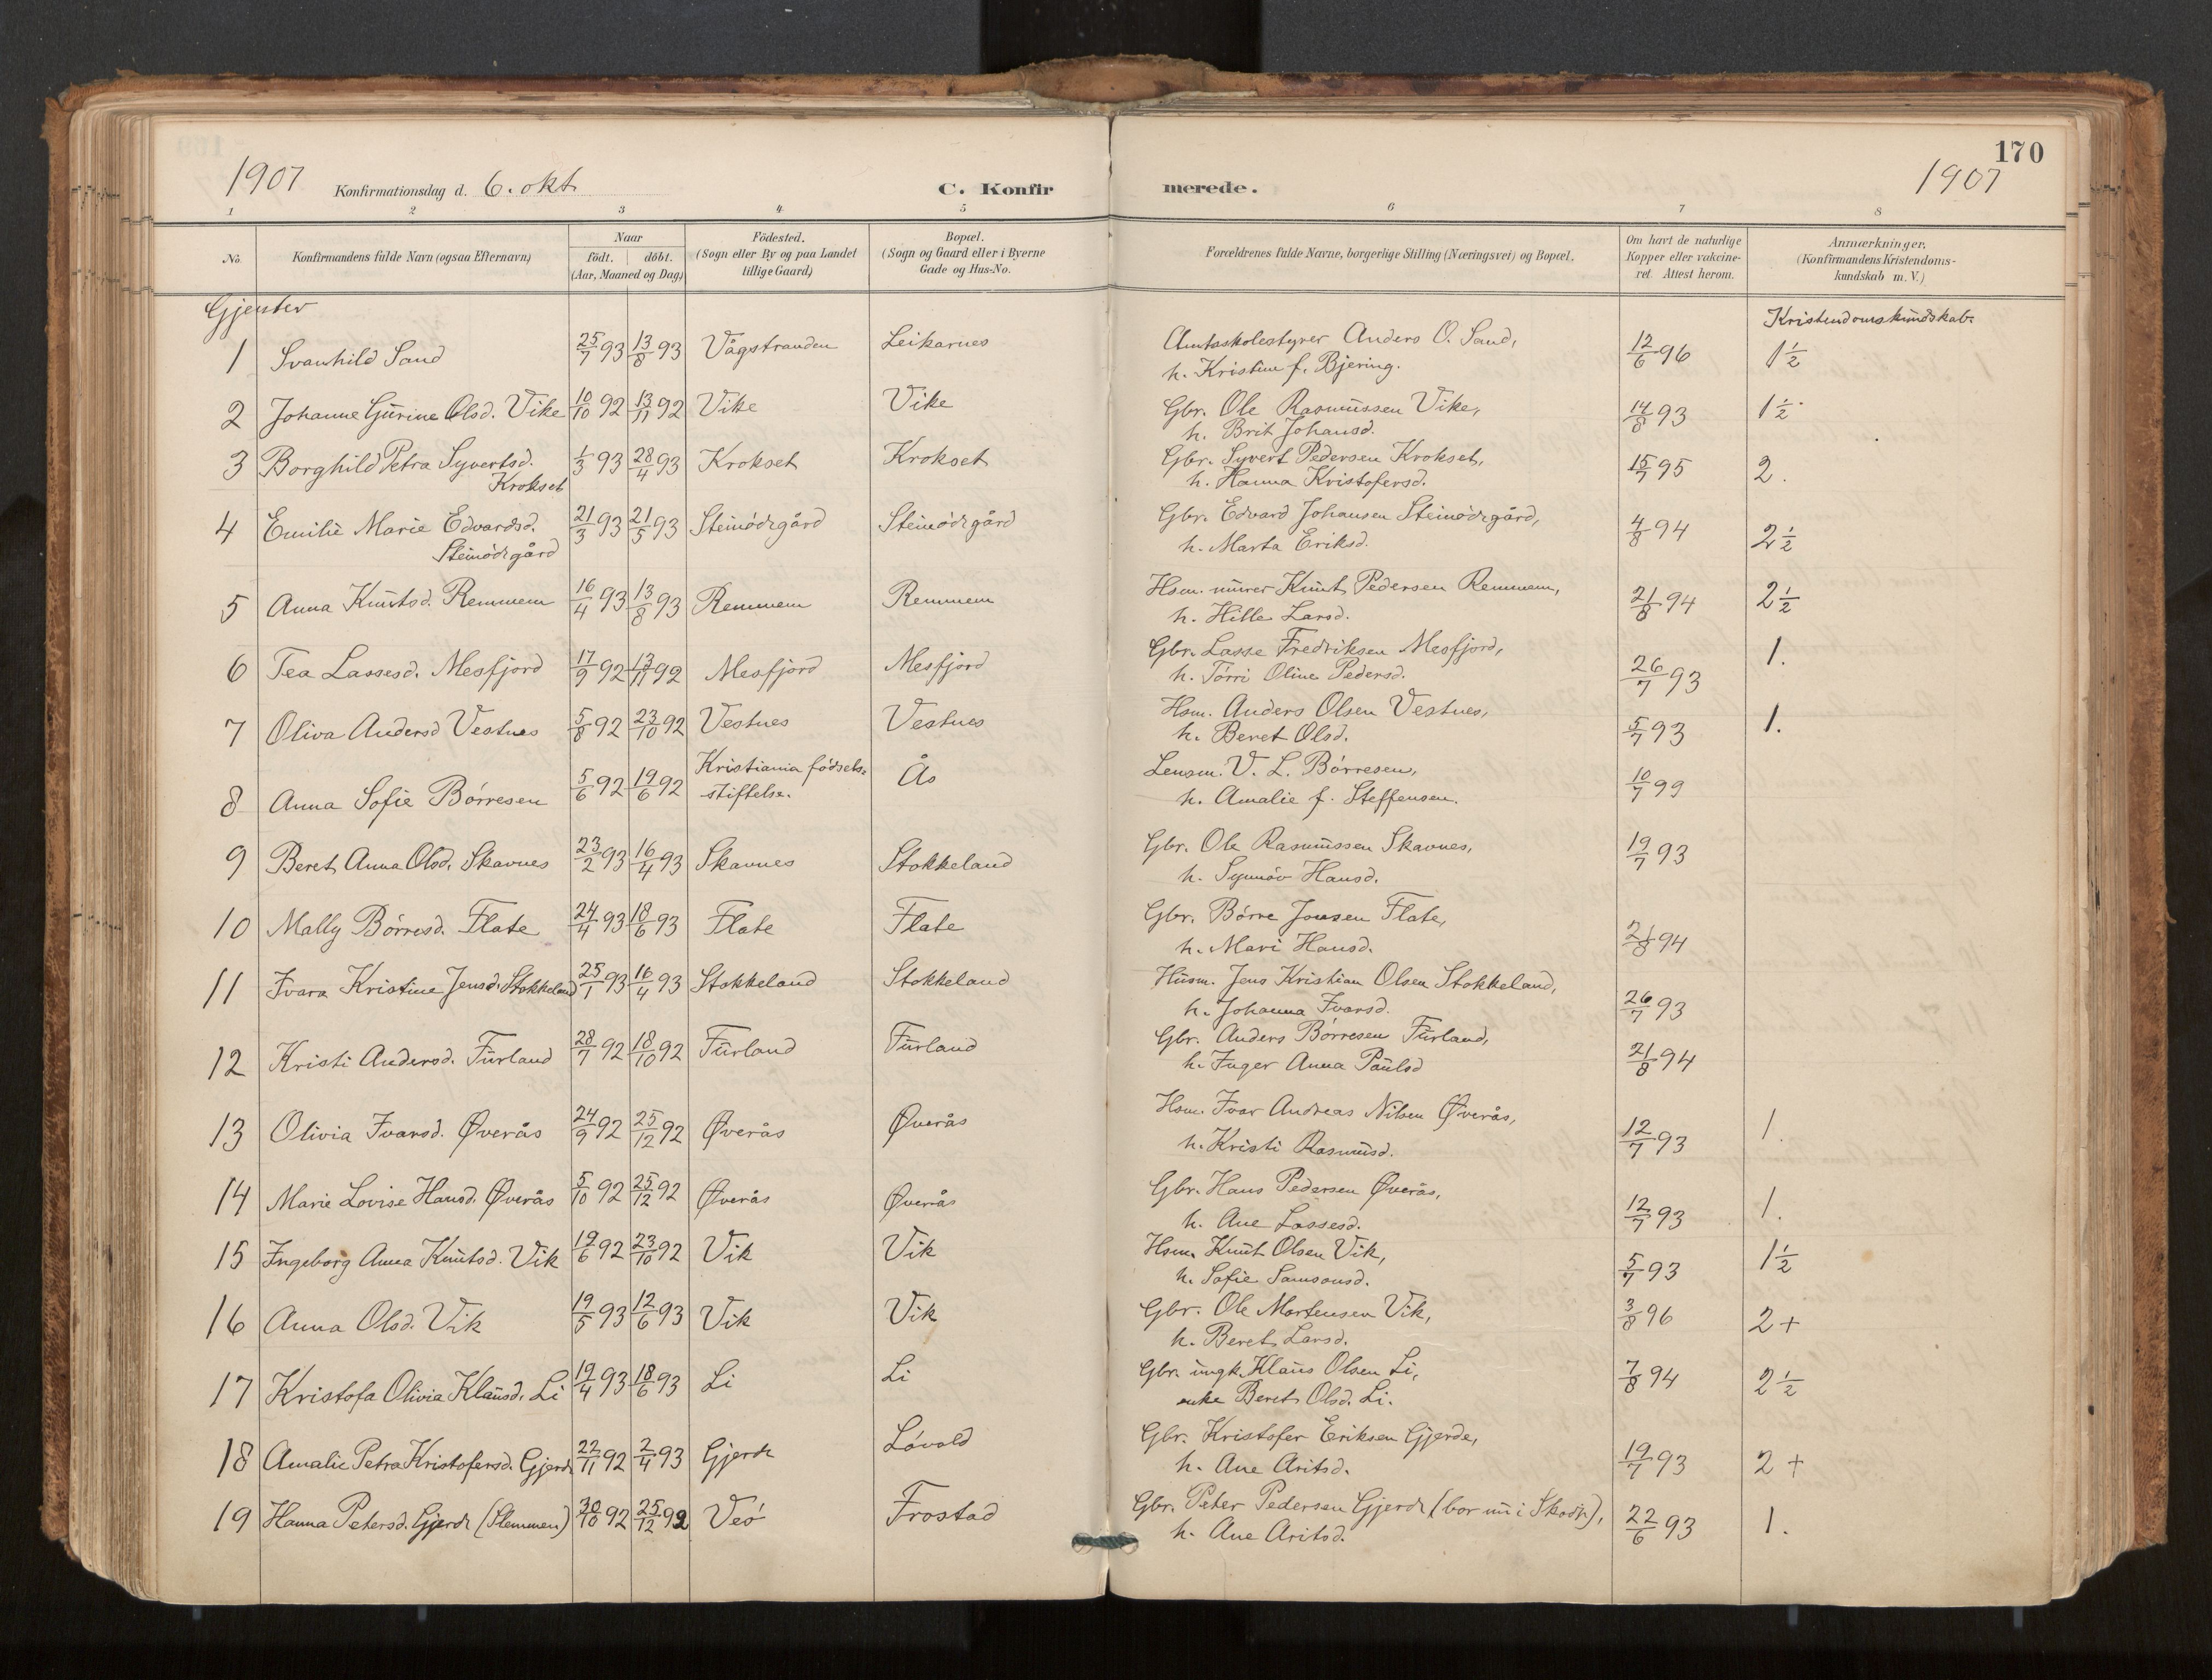 170
1907 Konfirmationsdag d. 6. okt. C. Konfirmerede. 1907
1 2 3 4 5 6 7 8
No. Konfirmandens fulde Navn (ogsaa Efternavn) Naar födt. döbt. (Aar, Maaned og Dag) Födested. (Sogn eller By og paa Landet tillige Gaard) Bopæl. (Sogn og Gaard eller i Byerne Gade og Hus-No. Forældrenes fulde Navne, borgerlige Stilling (Næringsvei) og Bopæl. Om havt de naturlige Kopper eller vakcineret. Attest herom. Anmærkninger. (Konfirmandens Kristendomskundskab m. V.)
Gjenter Kristendomskundskab.
1 Svanhild Sand 25/7 93 13/8 93 Vågstranden Leikarnes Amtsskolestyrer Anders O. Sand, 12/6 96 1 1/2
h. Kristine f. Bjering.
2 Johanne Gurine Olsd. Vike 10/10 92 13/11 92 Vike Vike Gbr. Ole Rasmussen Vike, 14/8 93 1 1/2
h. Brit Johansd.
3 Borghild Petra Syvertsd. 1/3 93 28/4 93 Krokset Krokset Gbr. Syvert Pedersen Krokset, 15/7 95 2.
Krokset h. Hanna Kristofersd.
4 Emilie Marie Edvardsd. 21/3 93 21/5 93 Steinödegård Steinödegård Gbr. Edvard Johansen Steinödegård, 4/8 94 2 1/2
Steinödegård h. Marta Eriksd.
5 Anna Knutsd. Remmem 16/4 93 13/8 93 Remmem Remmem Hsm. murer Knut Pedersen Remmem, 21/8 94 2 1/2
h. Hille Larsd.
6 Tea Lassesd. Mesfjord 17/9 92 13/11 92 Mesfjord Mesfjord Gbr. Lasse Fredriksen Mesfjord, 26/7 93 1.
h. Törri Oline Pedersd.
7 Oliva Andersd Vestnes 5/8 92 23/10 92 Vestnes Vestnes Hsm. Anders Olsen Vestnes, 5/7 93 1.
h. Beret Olsd.
8 Anna Sofie Börresen 5/6 92 19/6 92 Kristiania födsels- stiftelse. Ås Lensm. V. L. Börresen, 10/7 99
h. Amalie f. Steffensen.
9 Beret Anna Olsd. Skavnes 23/2 93 16/4 93 Skavnes Stokkeland Gbr. Ole Rasmussen Skavnes, 19/7 93
h. Synnöv Hansd.
10 Mally Börresd. Flate 24/4 93 18/6 93 Flate Flate Gbr. Börre Jonsen Flate, 21/8 94
h. Mari Hansd.
11 Ivara Kristine Jensd. Stokkeland 25/1 93 16/4 93 Stokkeland Stokkeland Husm. Jens Kristian Olsen Stokkeland, 26/7 93
h. Johanna Ivarsd.
12 Kristi Andersd. Furland 28/7 92 18/10 92 Furland Furland Gbr. Anders Börresen Furland, 21/8 94
h. Inger Anna Paulsd
13 Olivia Ivarsd. Øverås 24/9 92 25/12 92 Øverås Øverås Hsm. Ivar Andreas Nilsen Øverås, 12/7 93 1.
h. Kristi Rasmusd.
14 Marie Lovise Hansd. Øverås 5/10 92 25/12 92 Øverås Øverås Gbr. Hans Pedersen Øverås, 12/7 93 1.
h. Ane Lassesd.
15 Ingeborg Anna Knutsd. Vik 19/6 92 23/10 92 Vik Vik Hsm. Knut Olsen Vik, 5/7 93 1 1/2
h. Sofie Samsonsd.
16 Anna Olsd. Vik 19/5 93 12/6 93 Vik Vik Gbr. Ole Mortensen Vik, 3/8 96 2+
h. Beret Larsd.
17 Kristofa Olivia Klausd. Li 19/4 93 18/6 93 Li Li Gbr. ungk. Klaus Olsen Li, 7/8 94 2 1/2
enke Beret Olsd. Li.
18 Amalie Petra Kristofersd. Gjerde 22/11 92 2/4 93 Gjerde Lövold Gbr. Kristofer Eriksen Gjerde, 19/7 93 2 +
h. Ane Aritsd.
19 Hanna Petersd. Gjerde (Slemmen) 30/10 92 25/12 92 Veö Frostad Gbr. Peter Pedersen Gjerde (bor nu i Skodje), 22/6 93 1.
h. Ane Aritsd.